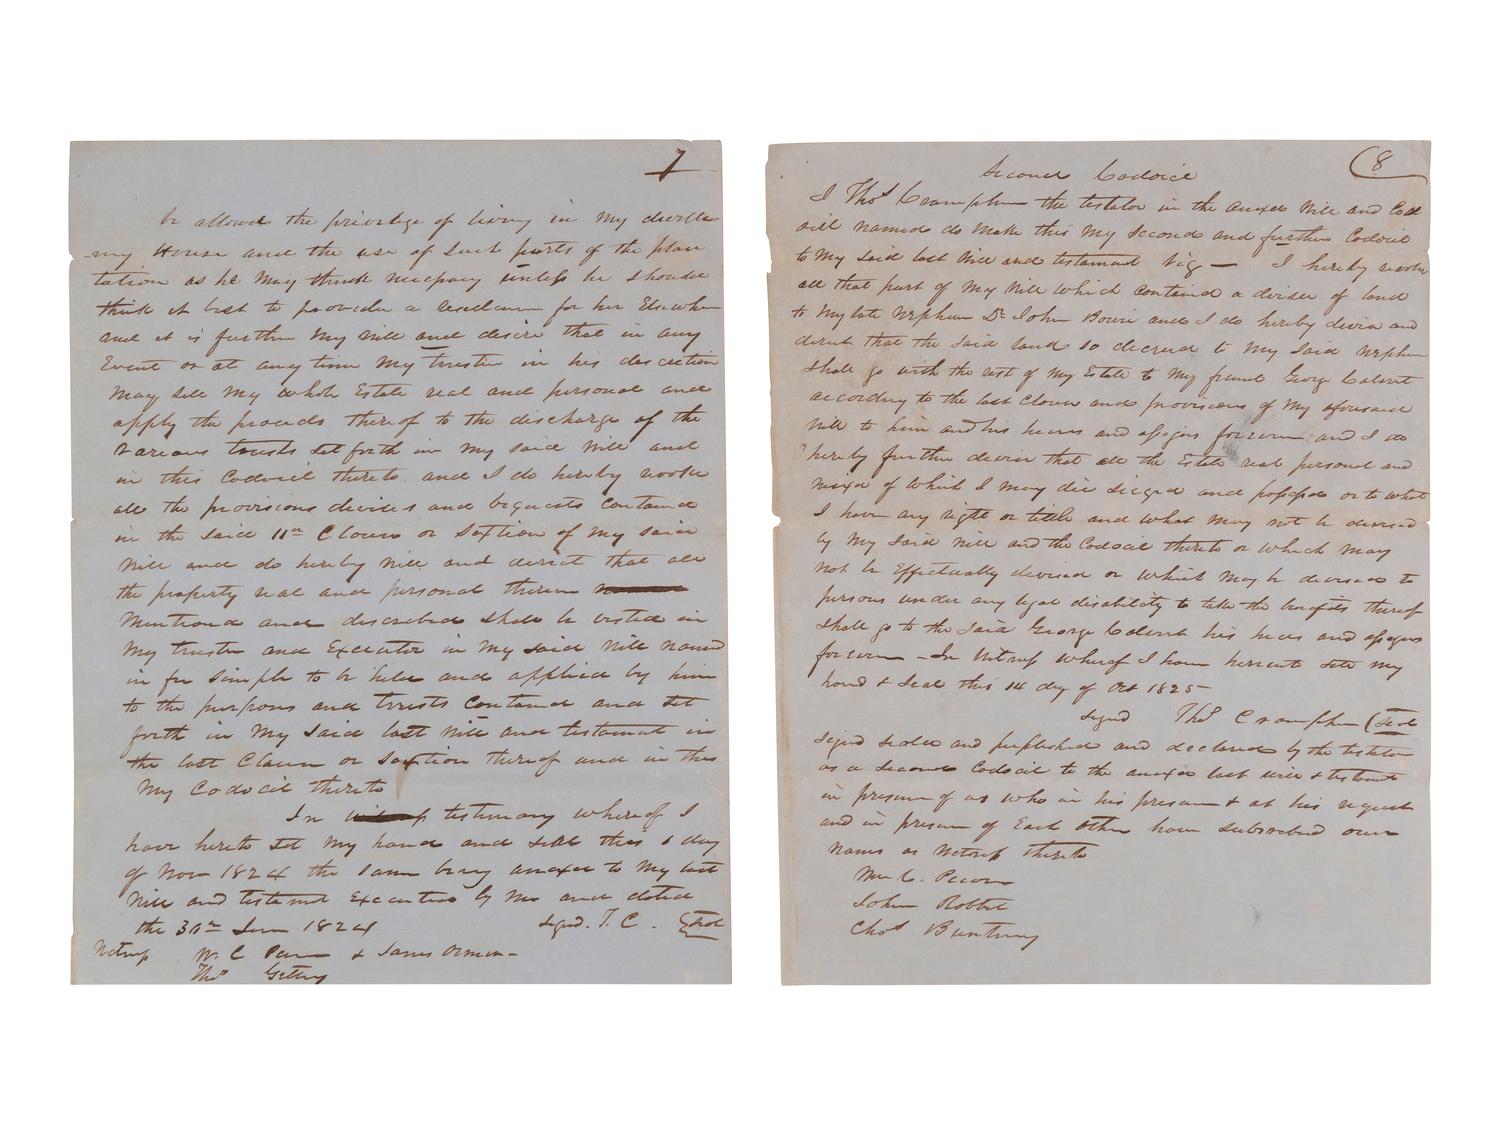 7
be allowed the priviledge of living in my dwelle
-my House and the use of such parts of the plan
tation as he may think necessary unless he should
think it best to provide a residence for her Elsewhere
and it is further my will and desire that in any
Event or at any time my trustee in his discretion
may sell my whole Estate real and personal and
apply the proceeds thereof to the discharge of the
various trusts set forth in my said will and
in this Codocil thereto and I do hereby revoke
all the provisions devises and bequests contained
in the said 11th Clause or Section of my said
will and do hereby will and direct that all
the property real and personal therein
mentioned and described shall be vested in
my trustee and Executor in my said will named
in fee simple to be held and applied by him
to the purposes and trusts contained and set
forth in my said last will and testament in
the last Clause or Section thereof and in this
my Codocil thereto
In testimony whereof I
have hereto set my hand and seal this 6 day
of Nov 1824 the same being annexed to my last
will and testament Executed by me and dated
the 30th June 1824 signed. T. C. Seal
Witness W. C. & James Orme-
Thos Gettings
(8
Second Codocil
I Thos Cramphin the testator in the annexed Will and Cod
icill named do make this my second and further Codocil
to my said last Will and testament viz — I hereby revoke
all that part of my Will which contained a devise of land
to my late Nephew Dr John Bowie and I do hereby devise and
direct that the said land so devised to my said Nephew
shall go with the rest of my Estate to my friend George Calvert
according to the last Clause and provisions of my aforesaid
Will to him and his heirs and assigns forever and I do
hereby further devise that all the Estate real personal and
mixed of which I may die siezed and possessed or to which
I have any right or title and what may not be devised
by my said Will and the Codocil thereto or which may
not be Effectually devised or which may be devised to
persons under any legal disability to take the benefits thereof
shall go to the said George Calvert his heirs and assigns
forever – In Witness whereof I have hereunto sett my
hand & Seal this 14 day of Oct 1825–
signed Thos Cramphin (Seal
signed sealed and published and declared by the testator
as a second Codocil to the annexed last will & testament
in presence of us who in his presence & at his request
and in presence of Each other have subscribed our
names as Witness thereto
Wm C.
John Rabbit
Chas Bunting